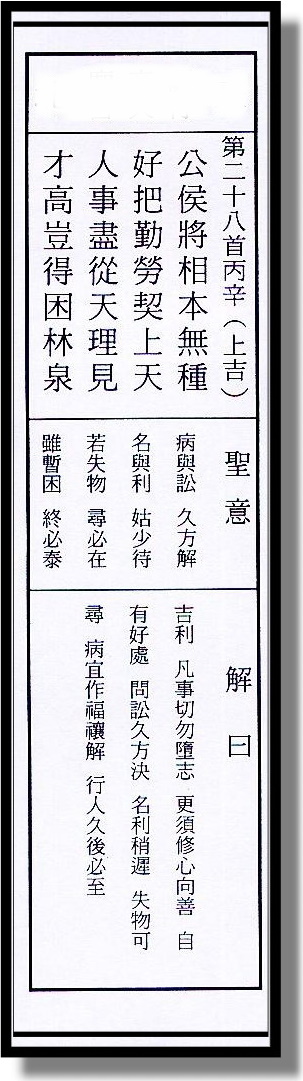 第二十八首丙辛（上吉）
公侯將相本無種
好把勤勞契上天
人事盡從天理見
才高豈得困林泉
聖意
病與訟 久方解
名與利 姑少待
若失物 尋必在
雖暫困 終必泰
解曰
吉利 凡事切勿墮志 更須修心向善 自
有好處 問訟久方決 名利稍遲 失物可
尋 病宜作福禳解 行人久後必至